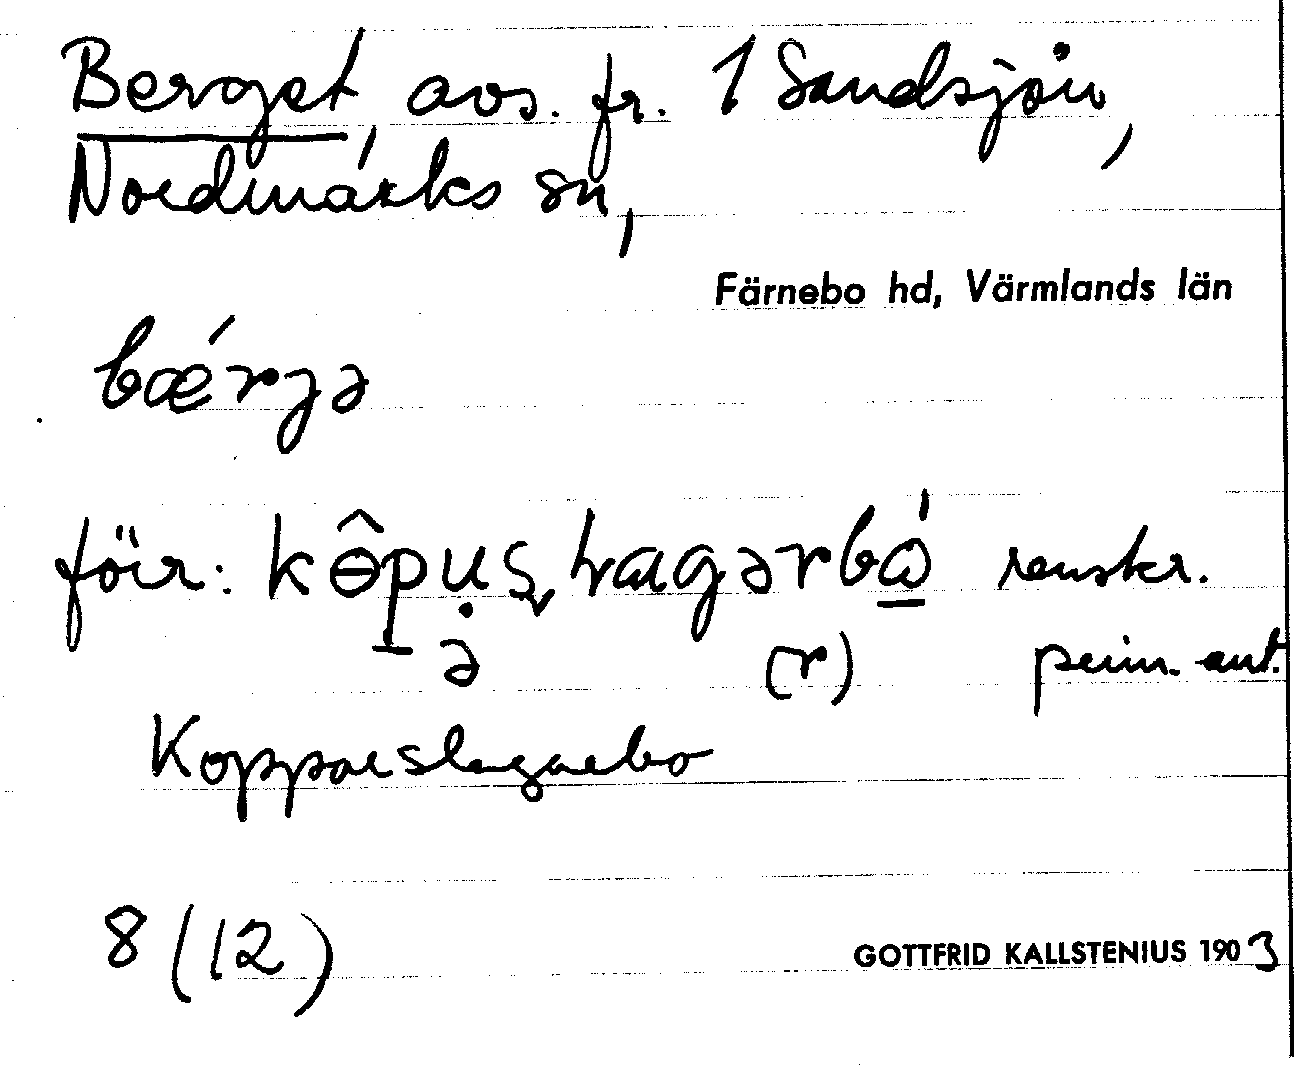 Berget, avs. fr. 1 Sandsjön,
Nordmarks sn,
Färnebo hd, Värmlands län
bǽrjə
förr: renskr.
ə (r) prim. ant.
Kopparslagarbo
8 (12) GOTTFRID KALLSTENIUS 1903